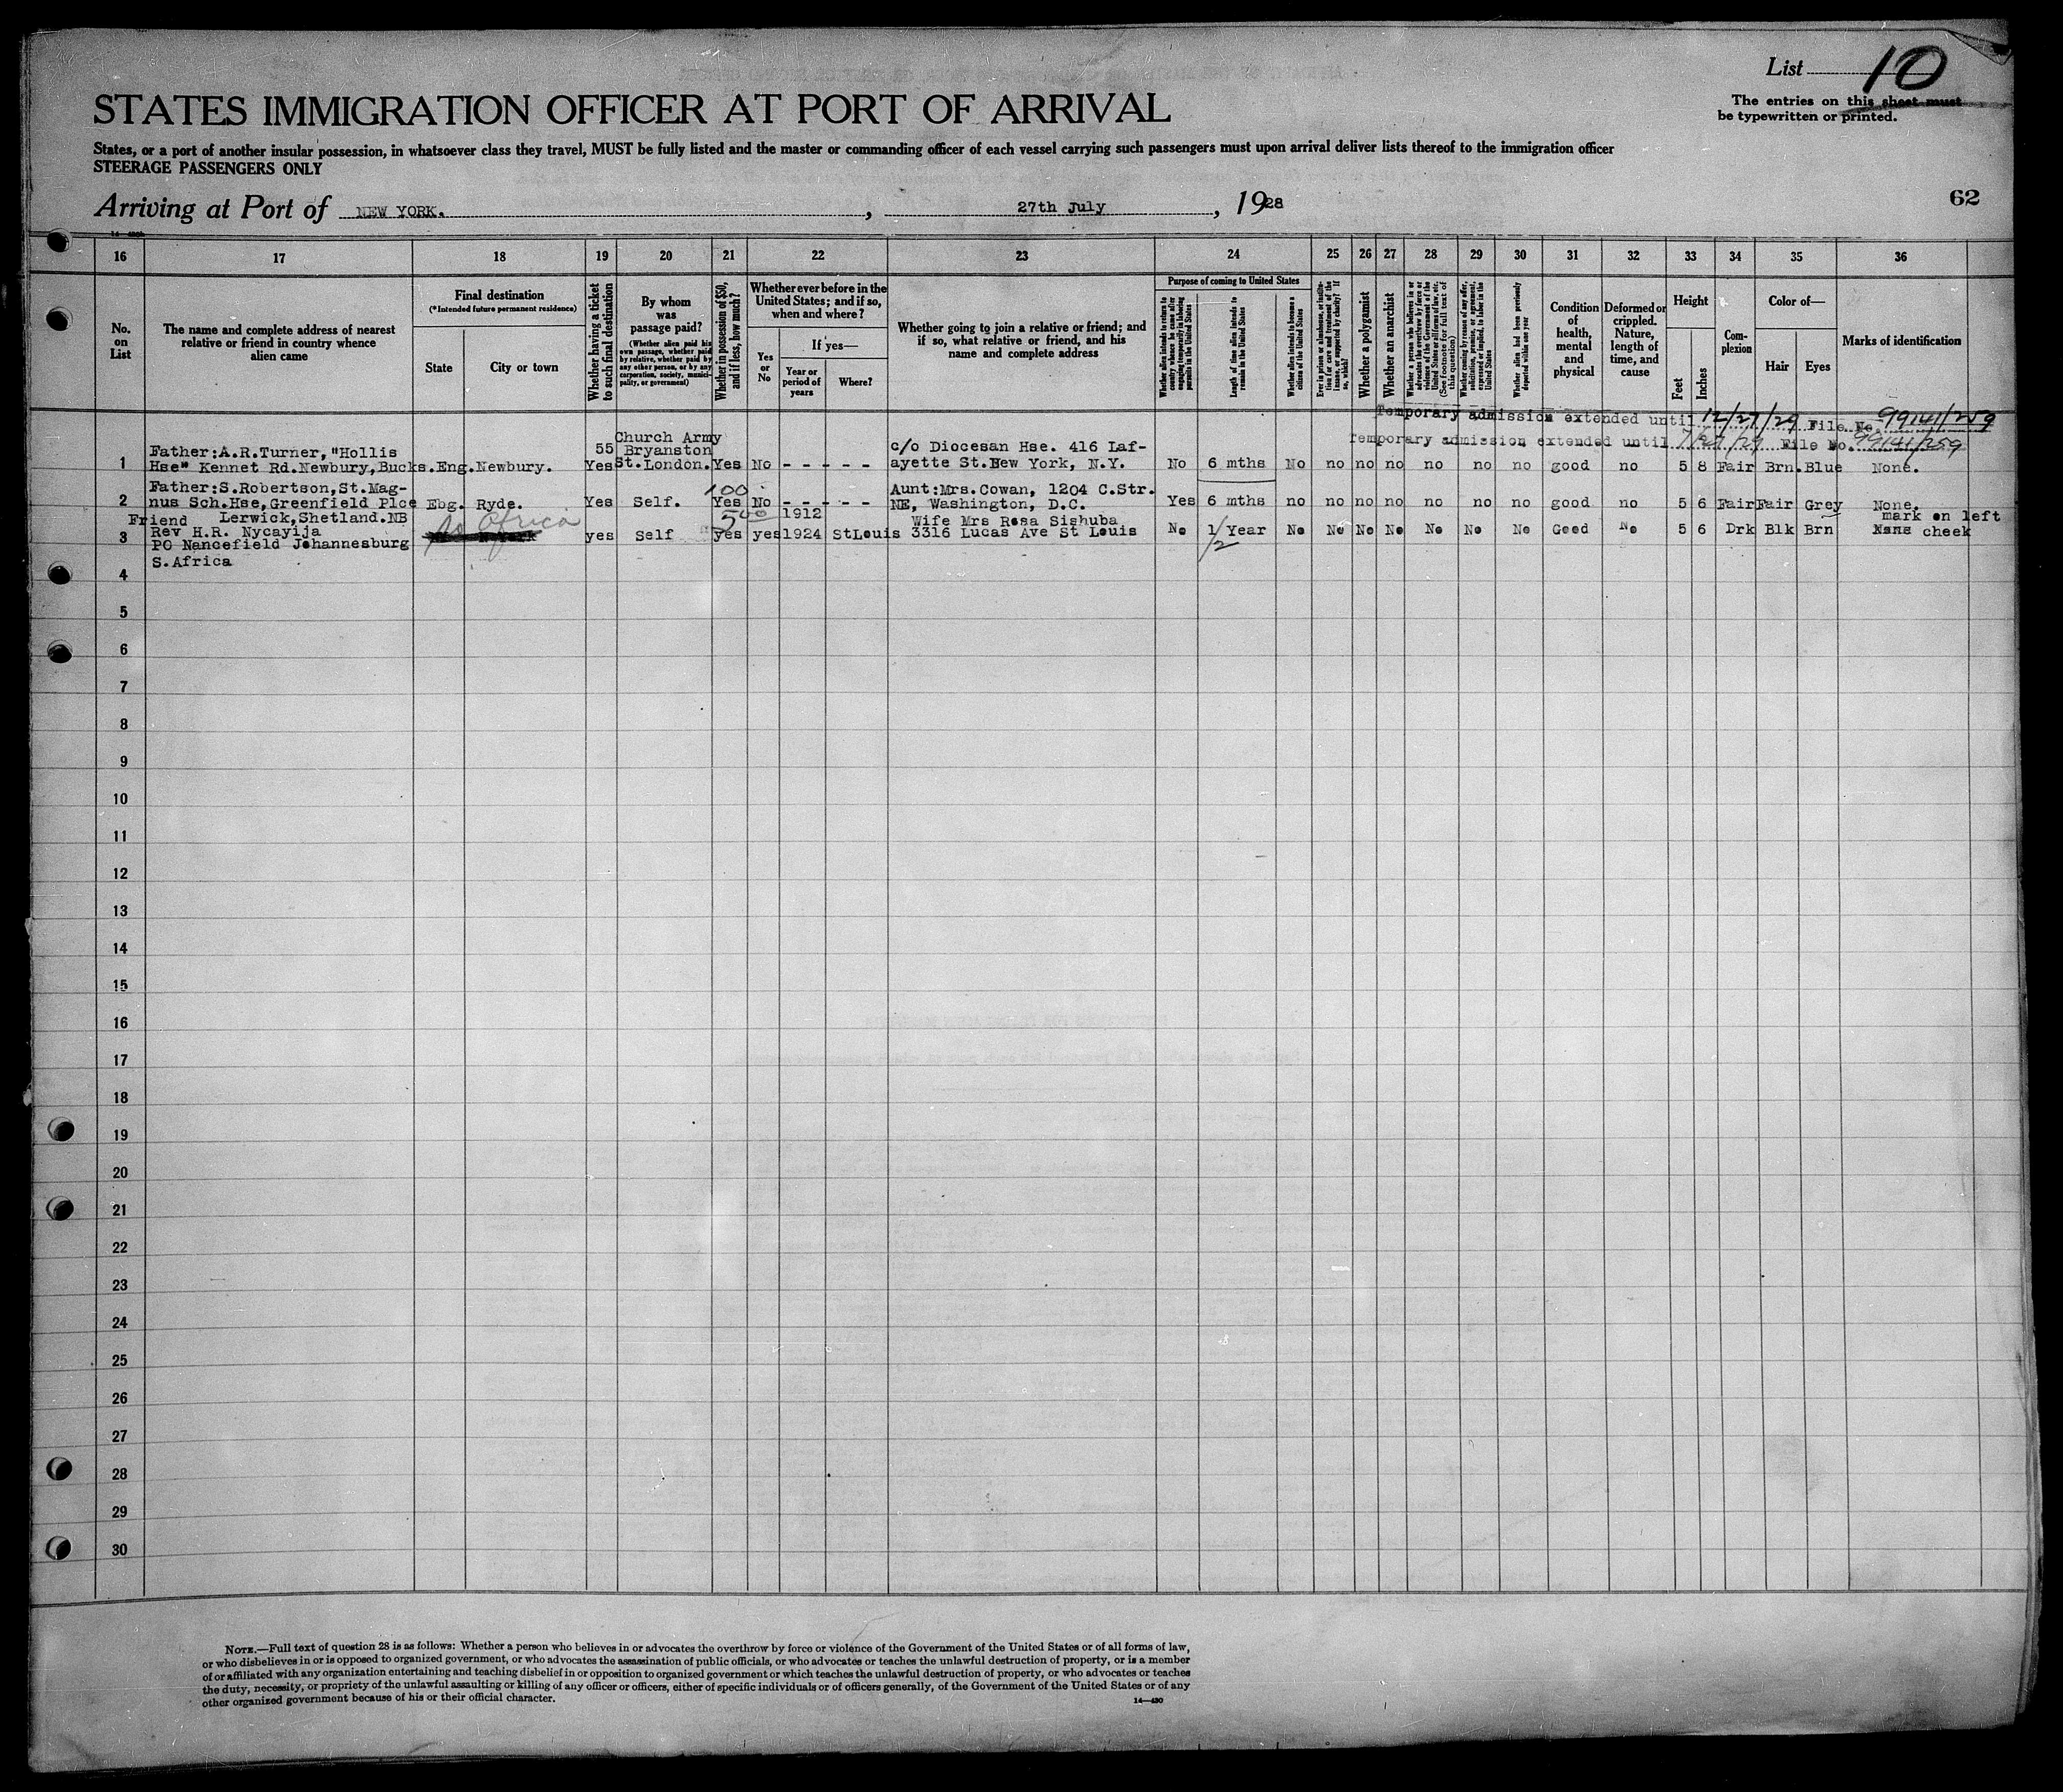 List 10
The entries on this sheet must
be typewritten or printed.
STATES IMMIGRATION OFFICER AT PORT OF ARRIVAL
States, or a port of another insular possession, in whatsoever class they travel, MUST be fully listed and the master or commanding officer of each vessel carrying such passengers must upon arrival deliver lists thereof to the immigration officer
STEERAGE PASSENGERS ONLY
Arriving at Port of NEW YORK. , 27th July , 1928
62
16 17 18 19 20 21 22 23 24 25 26 27 28 29 30 31 32 33 34 35 36
No. on List
The name and complete address of nearest relative or friend in country whence alien came
Final destination
(*Intended future permanent residence)
State
City or town
Whether having a ticket to such final destination
By whom was passage paid?
(Whether alien paid his own passage, whether paid by relative, whether paid by any other person, or by any corporation, society, municipality, or government)
Whether in possession of $50, and if less, how much?
Whether ever before in the United States; and if so, when and where?
Yes or No
If yes—
Year or period of years
Where?
Whether going to join a relative or friend; and if so, what relative or friend, and his name and complete address
Purpose of coming to United States
Whether alien intends to return to country whence he came after engaging temporarily in laboring pursuits in the United States
Length of time alien intends to remain in the United States
Whether alien intends to become a citizen of the United States
Ever in prison or almshouse, or institution for care and treatment of the insane, or supported by charity? If so, which?
Whether a polygamist
Whether an anarchist
Whether a person who believes in or advocates the overthrow by force or violence of the Government of the United States or all forms of law, etc. (See footnote for full text of this question)
Whether coming by reason of any offer, solicitation, promise, or agreement, expressed or implied, to labor in the United States
Whether alien had been previously deported within one year
Condition of health, mental and physical
Deformed or crippled. Nature, length of time, and cause
Height
Feet
Inches
Complexion
Color of—
Hair
Eyes
Marks of identification
Temporary admission extended until 12/27/29 File No. 99141/259
Temporary admission extended until 7/27/29 File No. 99141/259
Father:A.R.Turner,"Hollis 55 Church Army Bryanston c/o Diocesan Hse. 416 Laf-
1 Hse" Kennet Rd.Newbury,Bucks.Eng.Newbury. Yes St.London. Yes No - - - - - ayette St.Bew York, N.Y. No 6 mths No no no no no no no good no 5 8 Fair Brn. Blue None.
Father:S.Robertson,St.Mag- 100 Aunt:Mrs.Cowan, 1204 C.Str.
2 nus Sch.Hse,Greenfield Plce Ebg. Ryde. Yes Self. Yes No - - - - - NE, Washington, D.C. Yes 6 mths no no no no no no no good no 5 6 Fair Fair Grey None.
Friend Lerwick,Shetland.NB So Africa 500 1912 Wife Mrs Rosa Sishuba mark on left
3 Rev H.R. Nycayija yes Self yes yes 1924 StLouis 3316 Lucas Ave St Louis No 1/2 Year No No No No No No No Good No 5 6 Drk Blk Brn cheek
PO Nancefield Johannesburg
S.Africa
4
5
6
7
8
9
10
11
12
13
14
15
16
17
18
19
20
21
22
23
24
25
26
27
28
29
30
NOTE.—Full text of question 28 is as follows: Whether a person who believes in or advocates the overthrow by force or violence of the Government of the United States or of all forms of law,
or who disbelieves in or is opposed to organized government, or who advocates the assassination of public officials, or who advocates or teaches the unlawful destruction of property, or is a member
of or affiliated with any organization entertaining and teaching disbelief in or opposition to organized government or which teaches the unlawful destruction of property, or who advocates or teaches
the duty, necessity, or propriety of the unlawful assaulting or killing of any officer or officers, either of specific individuals or of officers generally, of the Government of the United States or of any
other organized government because of his or their official character.
14—430